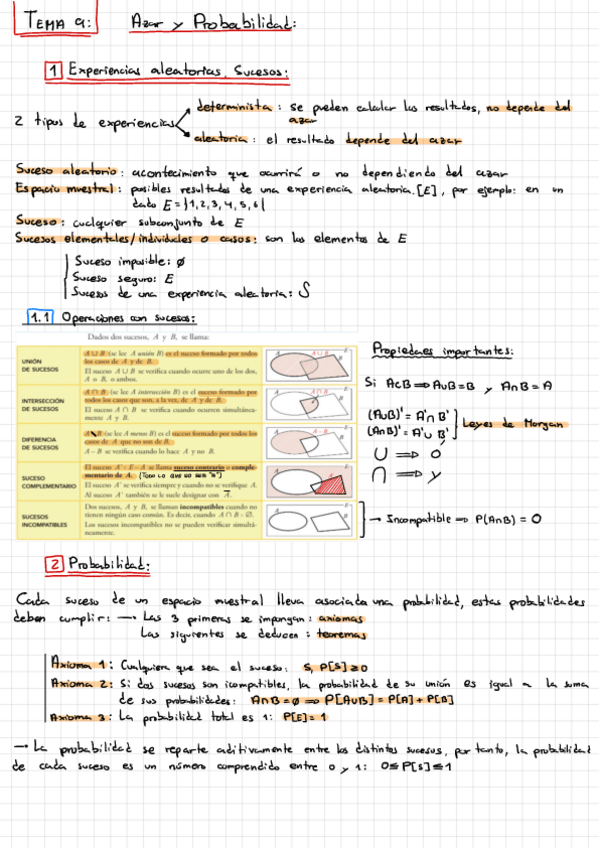 TEMA 9: Azar y Probabilidad:
1 Experiencias aleatorias. Sucesos:
2 tipos de experiencias
determinista: se pueden calcular los resultados, no depende del
azar
aleatoria: el resultado depende del azar
Suceso aleatorio: acontecimiento que ocurrirá o no dependiendo del azar
Espacio muestral: posibles resultados de una experiencia aleatoria. [E], por ejemplo: en un
dado E = {1,2,3,4,5,6}
Suceso: cualquier subconjunto de E
Sucesos elementales/individuales o casos: son los elementos de E
Suceso imposible: ∅
Suceso seguro: E
Sucesos de una experiencia aleatoria: S
1.1 Operaciones con sucesos:
Dados dos sucesos, A y B, se llama:
UNIÓN
DE SUCESOS
A ∪ B (se lee A unión B) es el suceso formado por todos
los casos de A y de B.
El suceso A ∪ B se verifica cuando ocurre uno de los dos,
A o B, o ambos.
A A ∪ B E
B
INTERSECCIÓN
DE SUCESOS
A ∩ B (se lee A intersección B) es el suceso formado por
todos los casos que son, a la vez, de A y de B.
El suceso A ∩ B se verifica cuando ocurren simultánea-
mente A y B.
A A ∩ B E
B
DIFERENCIA
DE SUCESOS
A \ B (se lee A menos B) es el suceso formado por todos los
casos de A que no son de B.
A – B se verifica cuando lo hace A y no B.
SUCESO
COMPLEMENTARIO
El suceso A' = E – A se llama suceso contrario o comple-
mentario de A. (Todo lo que no sea "A")
El suceso A' se verifica siempre y cuando no se verifique A.
Al suceso A' también se le suele designar con A̅.
SUCESOS
INCOMPATIBLES
Dos sucesos, A y B, se llaman incompatibles cuando no
tienen ningún caso común. Es decir, cuando A ∩ B = ∅.
Los sucesos incompatibles no se pueden verificar simultá-
neamente.
Propiedades importantes:
Si A⊂B ⟹ A∪B = B y A∩B = A
(A∪B)' = A'∩B'
(A∩B)' = A'∪B'
Leyes de Morgan
∪ ⟹ O
∩ ⟹ y
→ Incompatible ⟹ P(A∩B) = 0
2 Probabilidad:
Cada suceso de un espacio muestral lleva asociada una probabilidad, estas probabilidades
deben cumplir: → Las 3 primeras se impongan: axiomas
Las siguientes se deducen: teoremas
Axioma 1: Cualquiera que sea el suceso: S, P[S] ≥ 0
Axioma 2: Si dos sucesos son icompatibles, la probabilidad de su unión es igual a la suma
de sus probabilidades: A∩B = ∅ ⟹ P[A∪B] = P[A] + P[B]
Axioma 3: La probabilidad total es 1: P[E] = 1
→ La probabilidad se reparte aditivamente entre los distintos sucesos, por tanto, la probabilidad
de cada suceso es un número comprendido entre 0 y 1: 0 ≤ P[S] ≤ 1